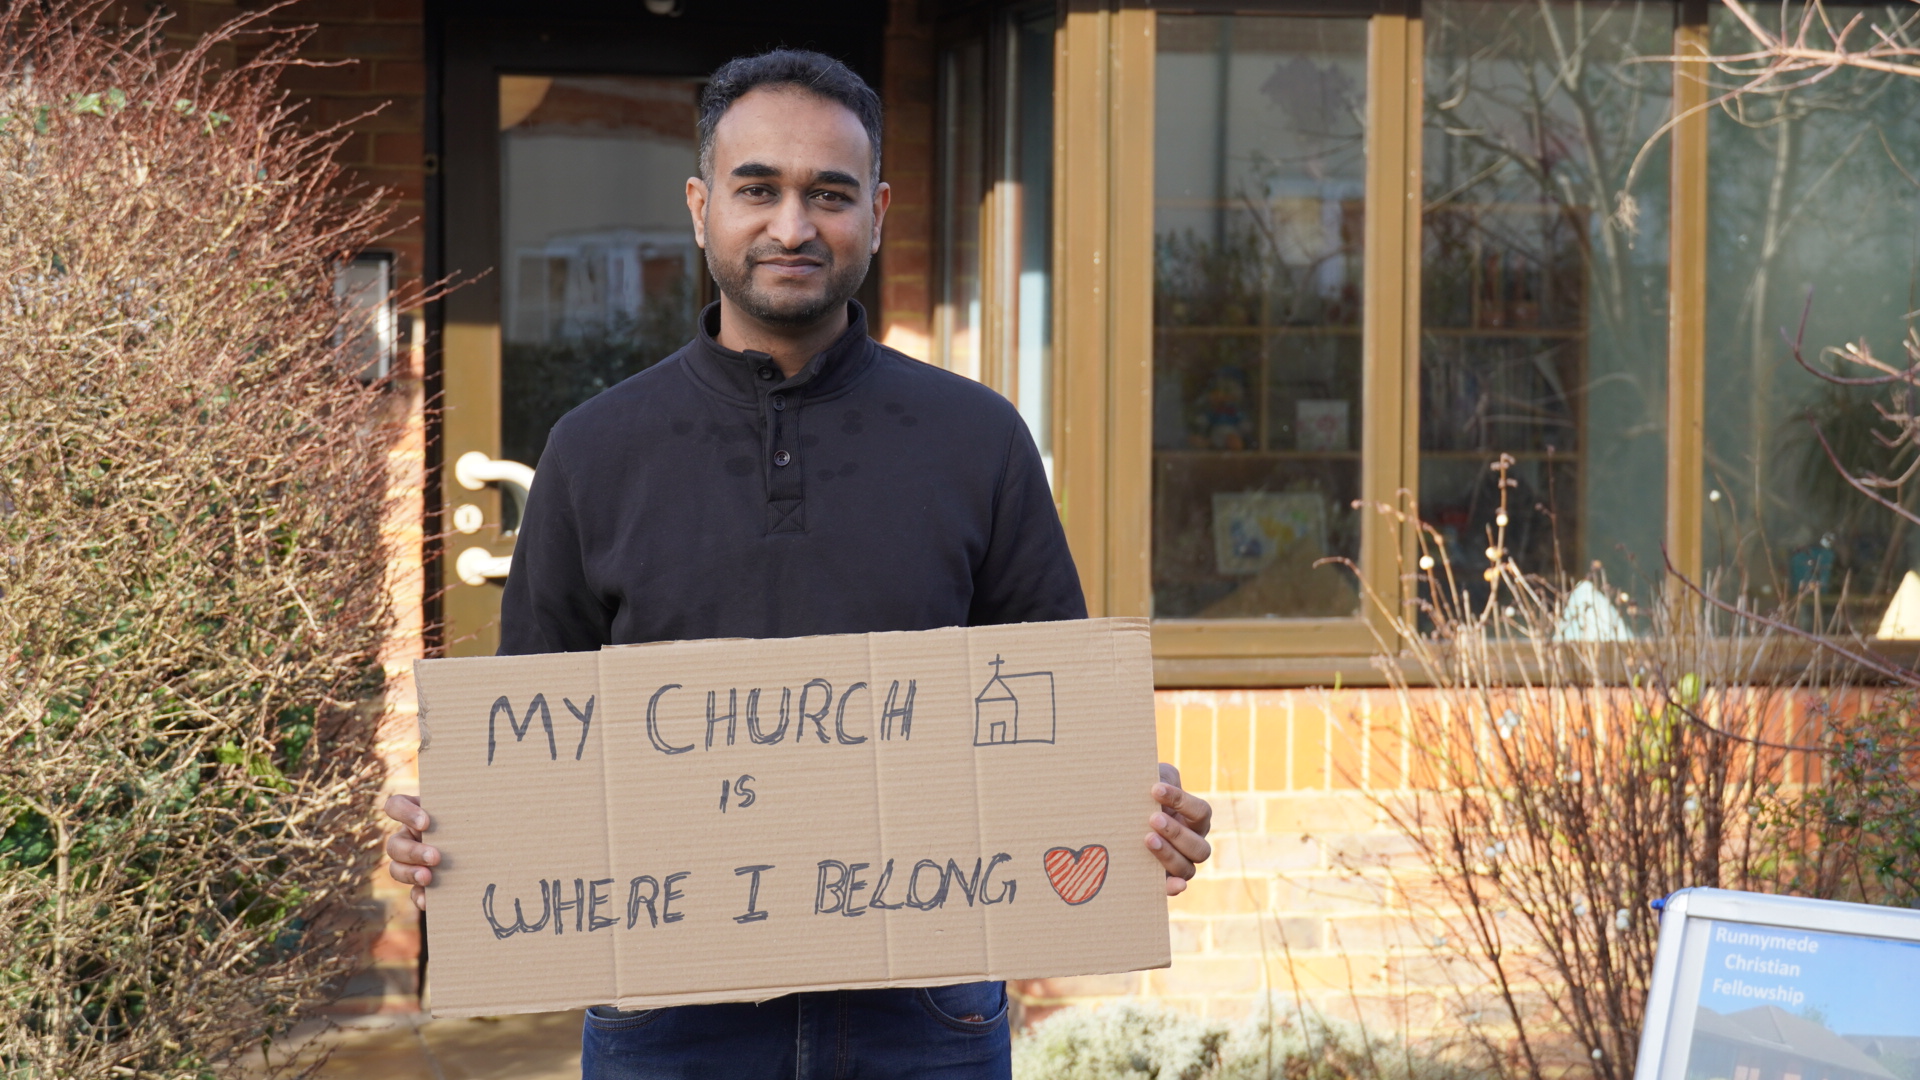 MY CHURCH
IS
WHERE I BELONG
Runnymede
Christian
Fellowship